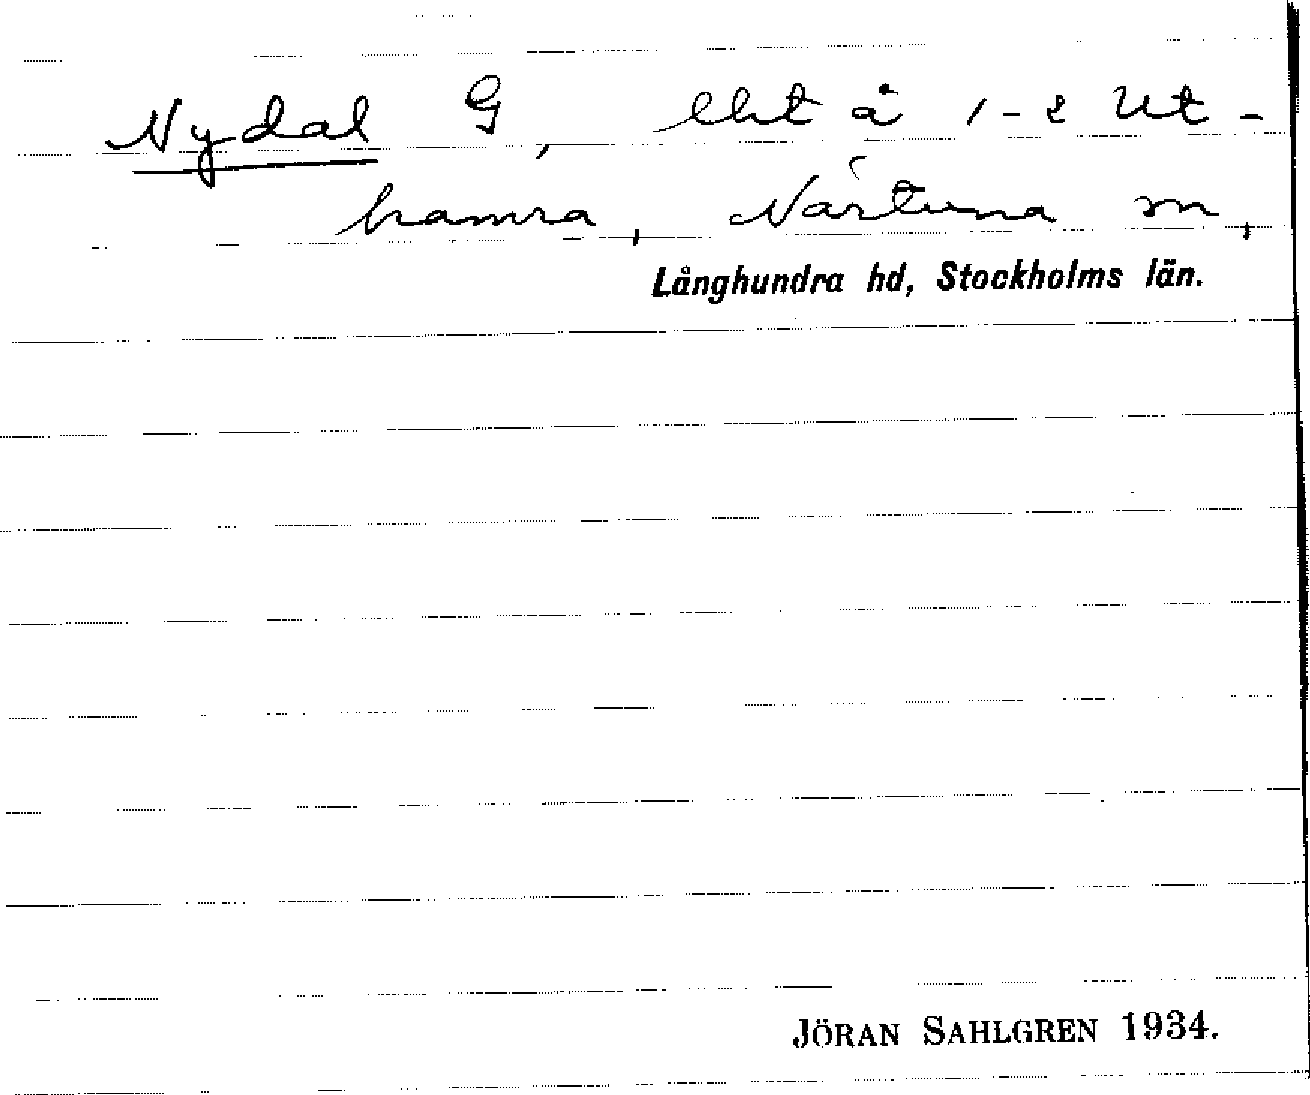 Nydal G, lht å 1-2 Ut-
hamra, Närtuna sn,
Långhundra hd, Stockholms län.
JÖRAN SAHLGREN 1934.